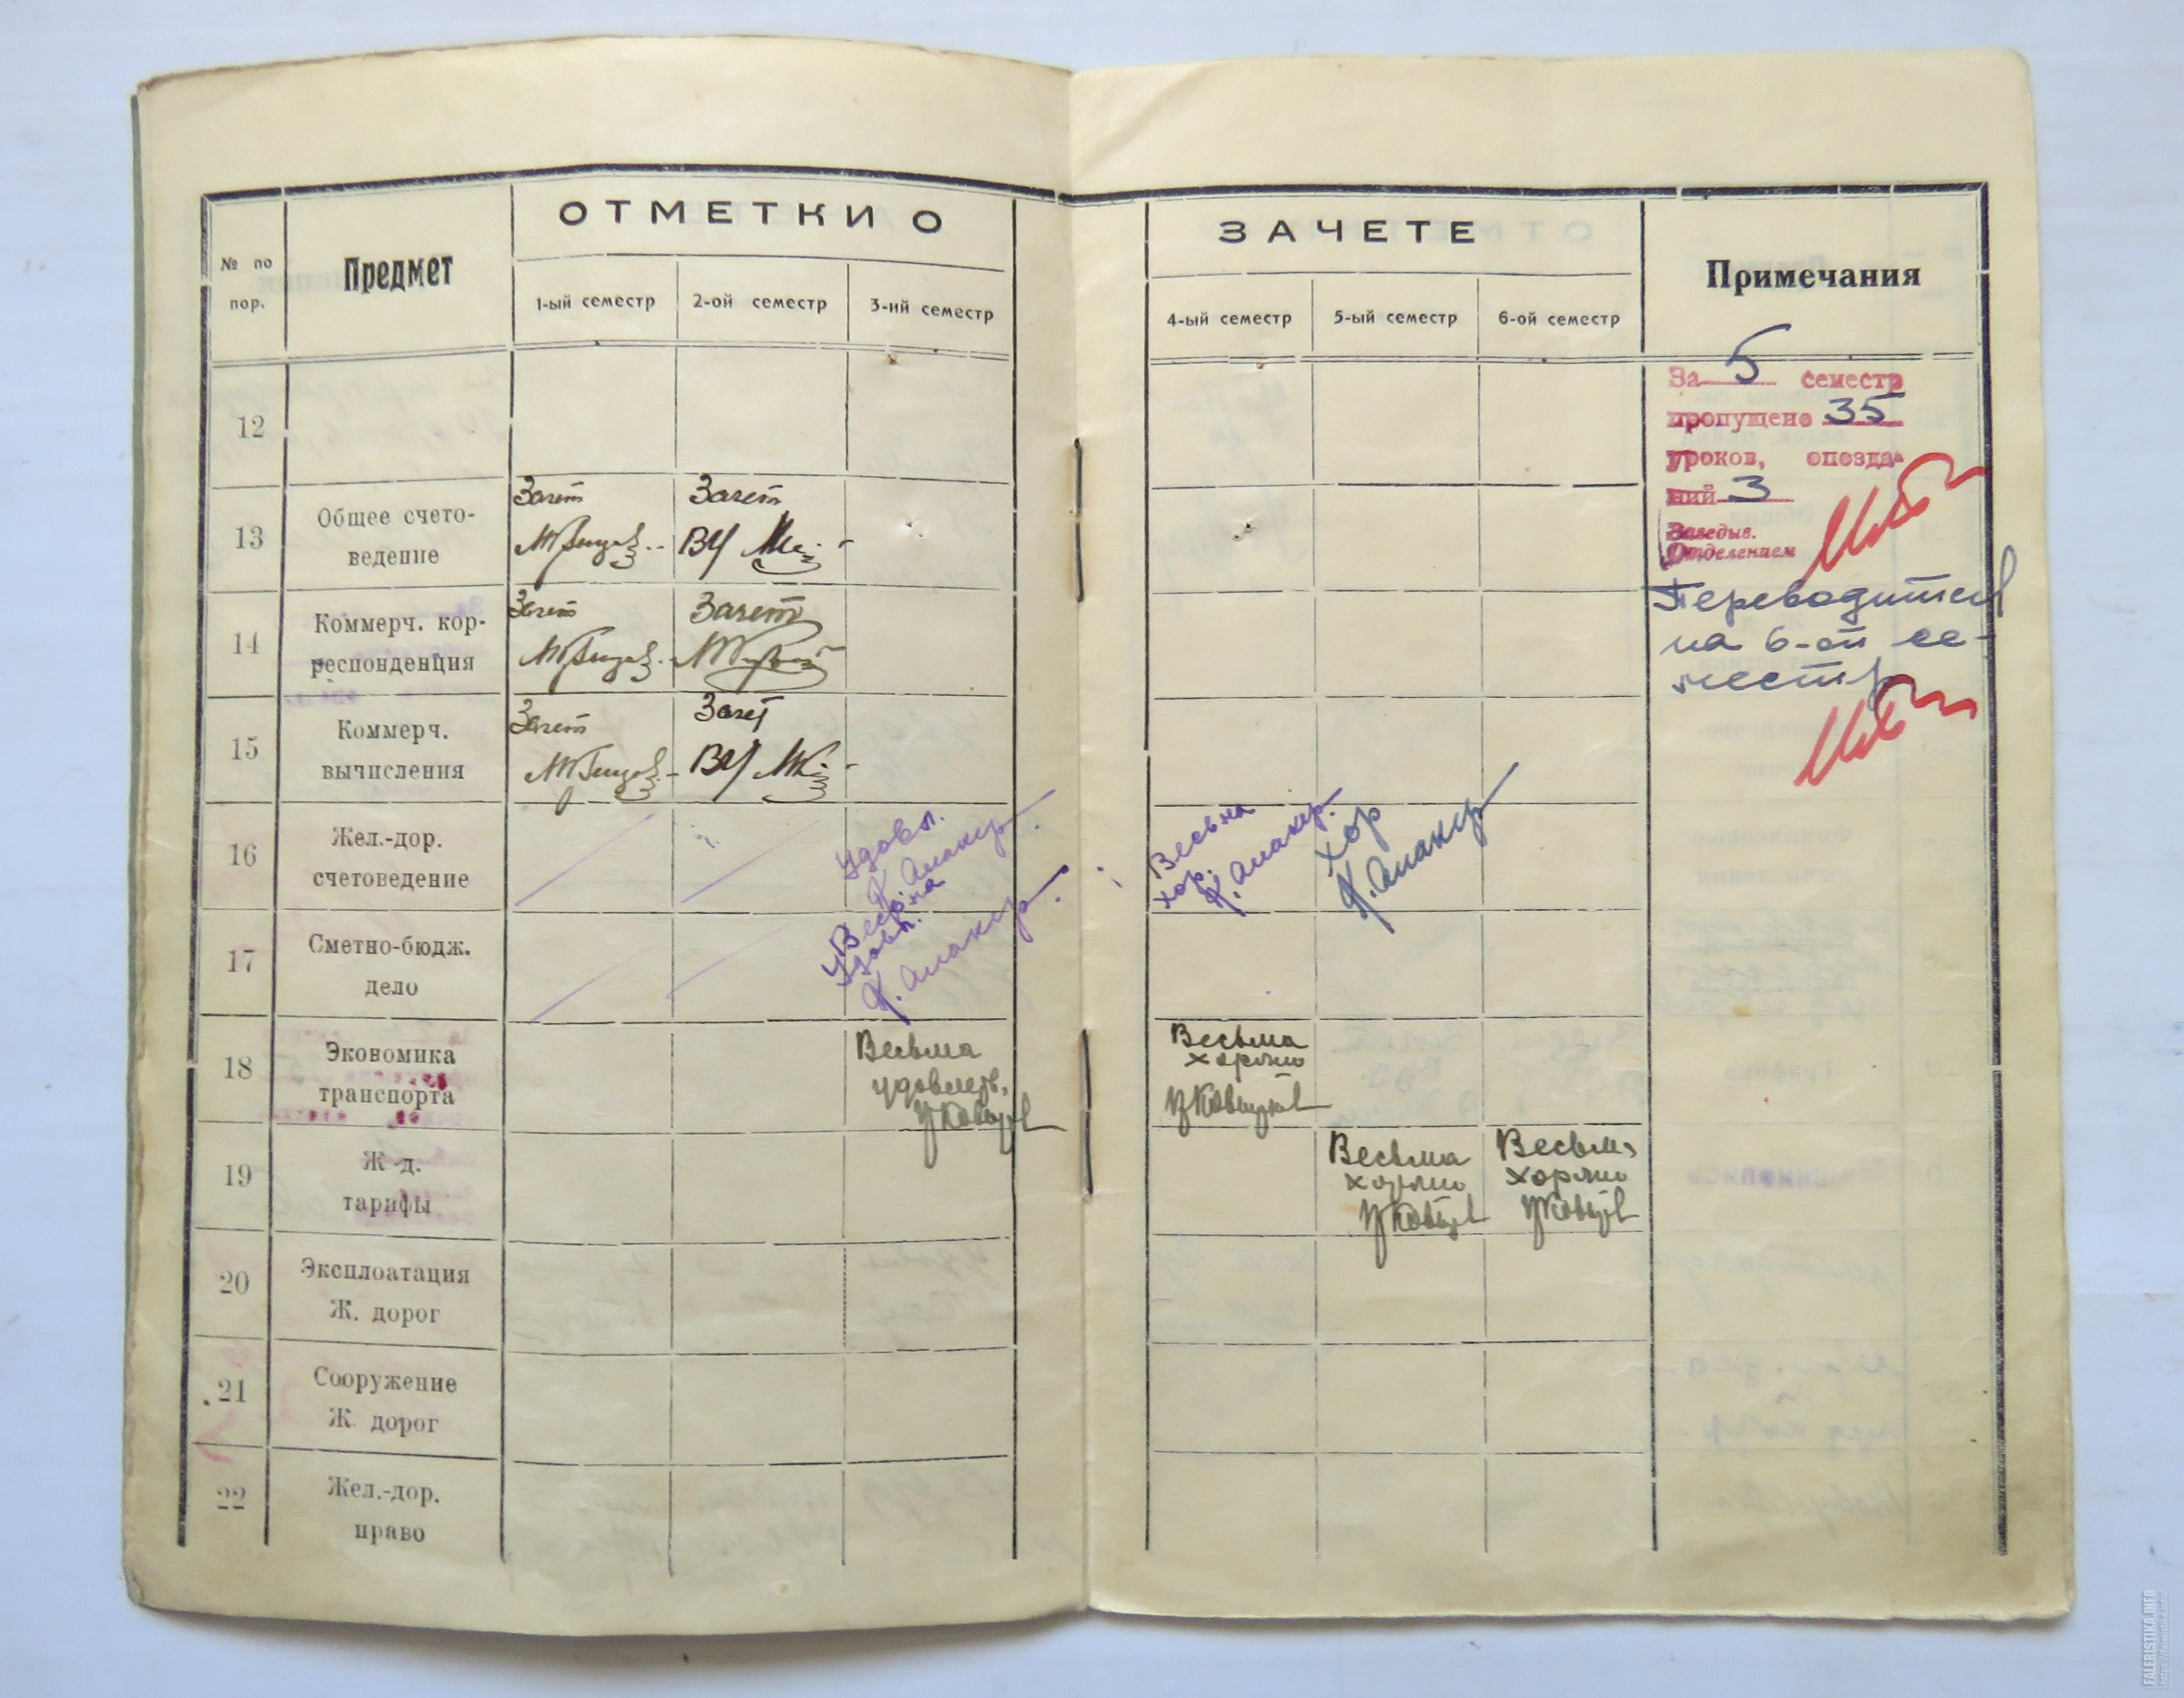 ОТМЕТКИ О
ЗАЧЕТЕ
№ по
пор.
Предмет
1-ый семестр
2-ой семестр
3-ий семестр
4-ый семестр
5-ый семестр
6-ой семестр
Примечания
12
За 5 семестр
пропущено 35
уроков, опозда-
ний 3
Заведыв.
Отделением
Переводится
на 6-ой се-
местр
13
Общее счето-
ведение
Зачет
Зачет
ВУ
14
Коммерч. кор-
респонденция
Зачет
Зачет
15
Коммерч.
вычисления
Зачет
Зачет
ВУ
16
Жел.-дор.
счетоведение
Удовл.
Весьма
хор.
Хор
17
Сметно-бюдж.
дело
Весьма
удовл.
18
Экономика
транспорта
Весьма
удовлетв.
Весьма
хорошо
19
Ж-д.
тарифы
Весьма
хорошо
Весьма
хорошо
20
Эксплоатация
Ж. дорог
21
Сооружение
Ж. дорог
22
Жел.-дор.
право
FALERISTIKA.INFO